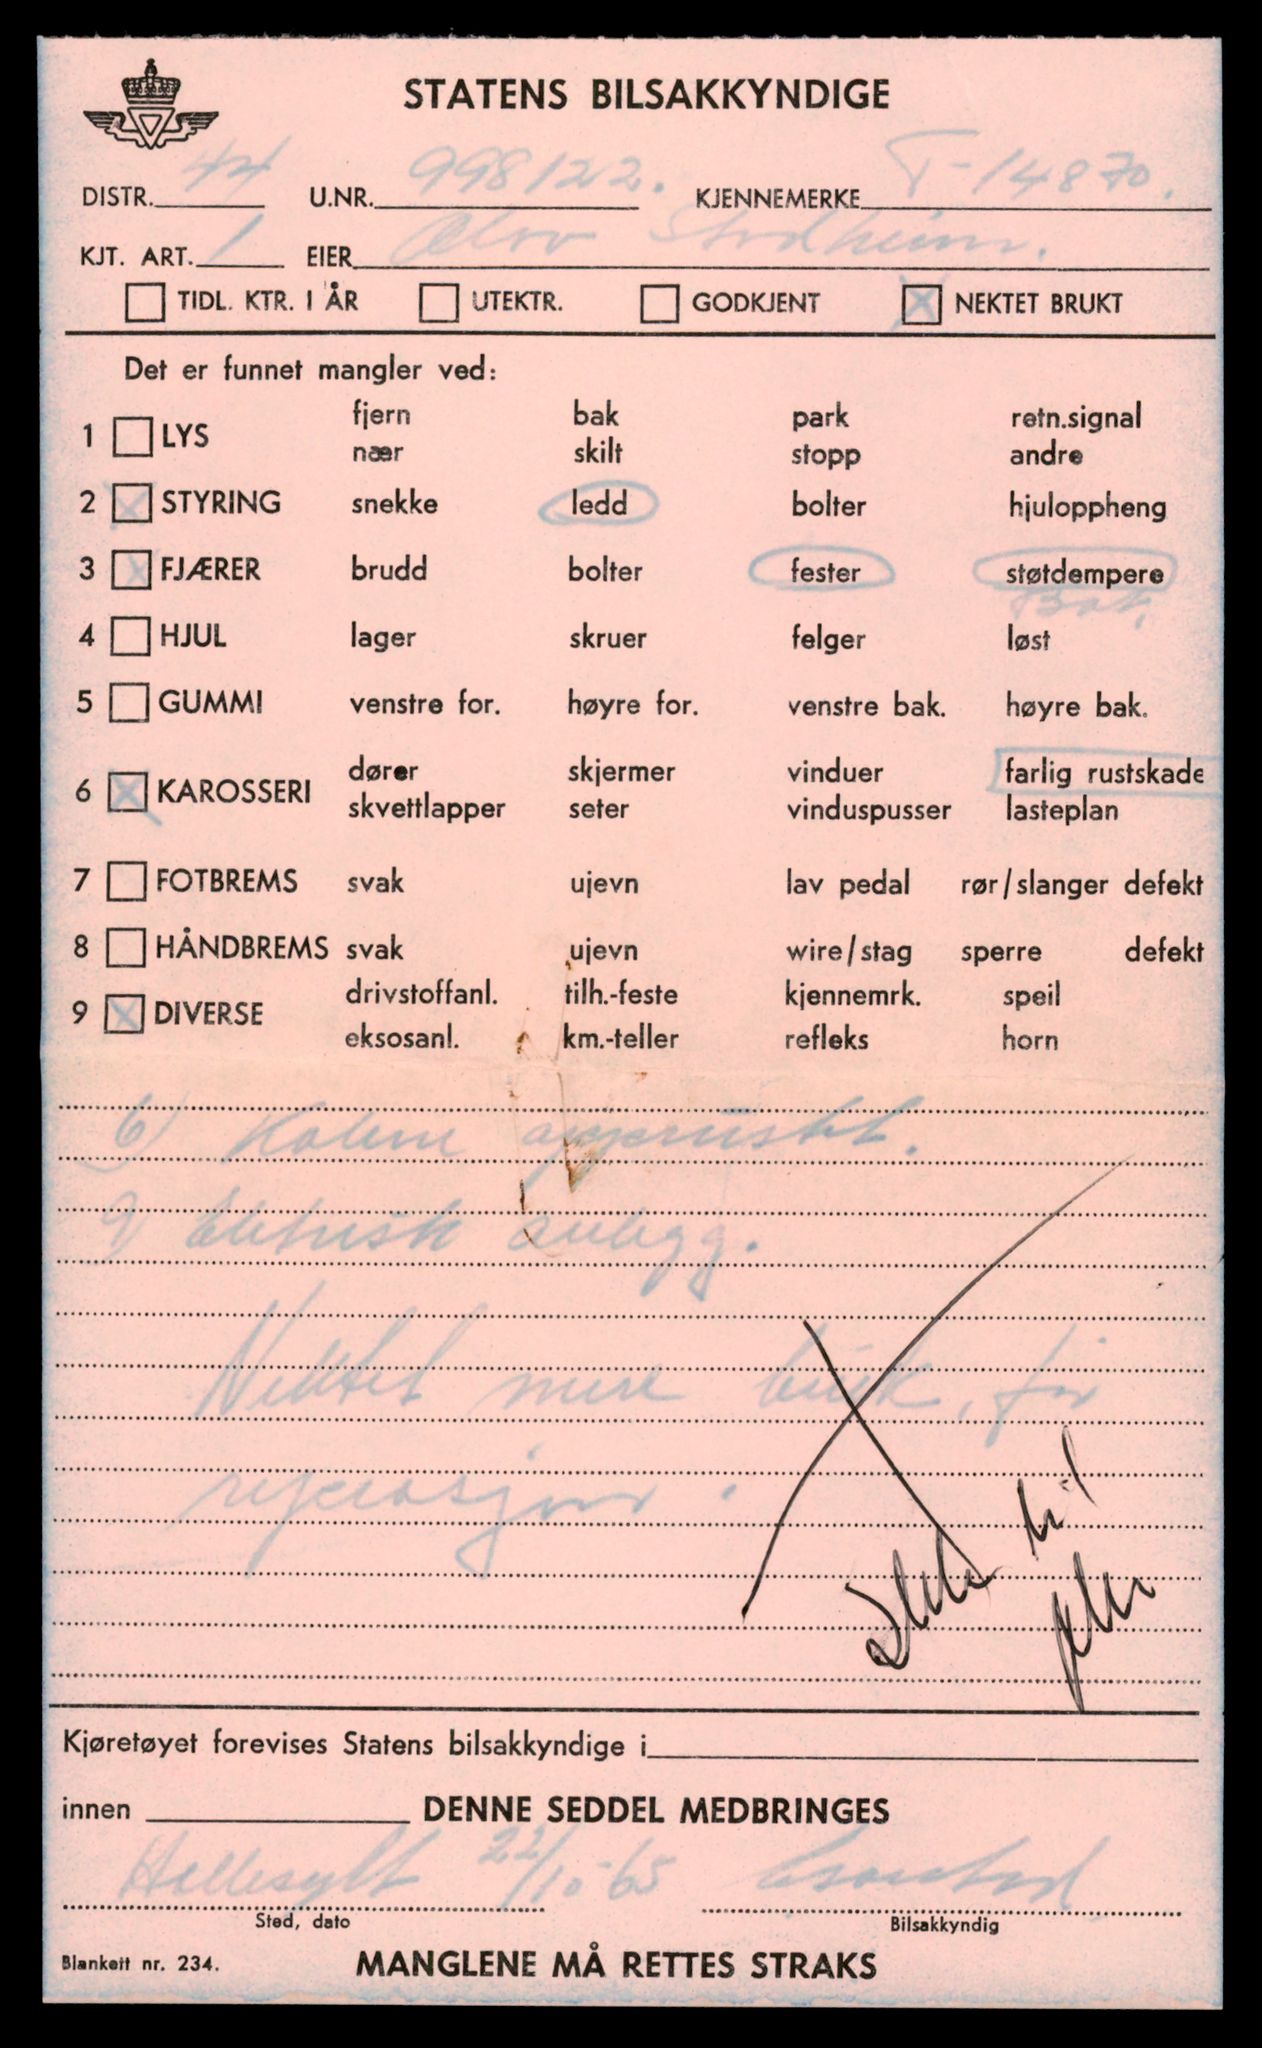 STATENS BILSAKKYNDIGE
DISTR. 44 U.NR. 998122. KJENNEMERKE T-14870.
KJT. ART. 1 EIER Olav Stadheim.
TIDL. KTR. I ÅR UTEKTR. GODKJENT NEKTET BRUKT
Det er funnet mangler ved:
1 LYS fjern bak park retn.signal
nær skilt stopp andre
2 STYRING snekke ledd bolter hjuloppheng
3 FJÆRER brudd bolter fester støtdempere
Bak.
4 HJUL lager skruer felger løst
5 GUMMI venstre for. høyre for. venstre bak. høyre bak.
6 KAROSSERI dører skjermer vinduer farlig rustskade
skvettlapper seter vinduspusser lasteplan
7 FOTBREMS svak ujevn lav pedal rør/slanger defekt
8 HÅNDBREMS svak ujevn wire/stag sperre defekt
9 DIVERSE drivstoffanl. tilh.-feste kjennemrk. speil
eksosanl. km.-teller refleks horn
6) opprustet.
9) Eletrisk anlegg.
Nektet mere bruk, før
reperasjon.
til
Kjøretøyet forevises Statens bilsakkyndige i
innen DENNE SEDDEL MEDBRINGES
Hellesylt 22/10-65
Sted, dato Bilsakkyndig
Blankett nr. 234. MANGLENE MÅ RETTES STRAKS